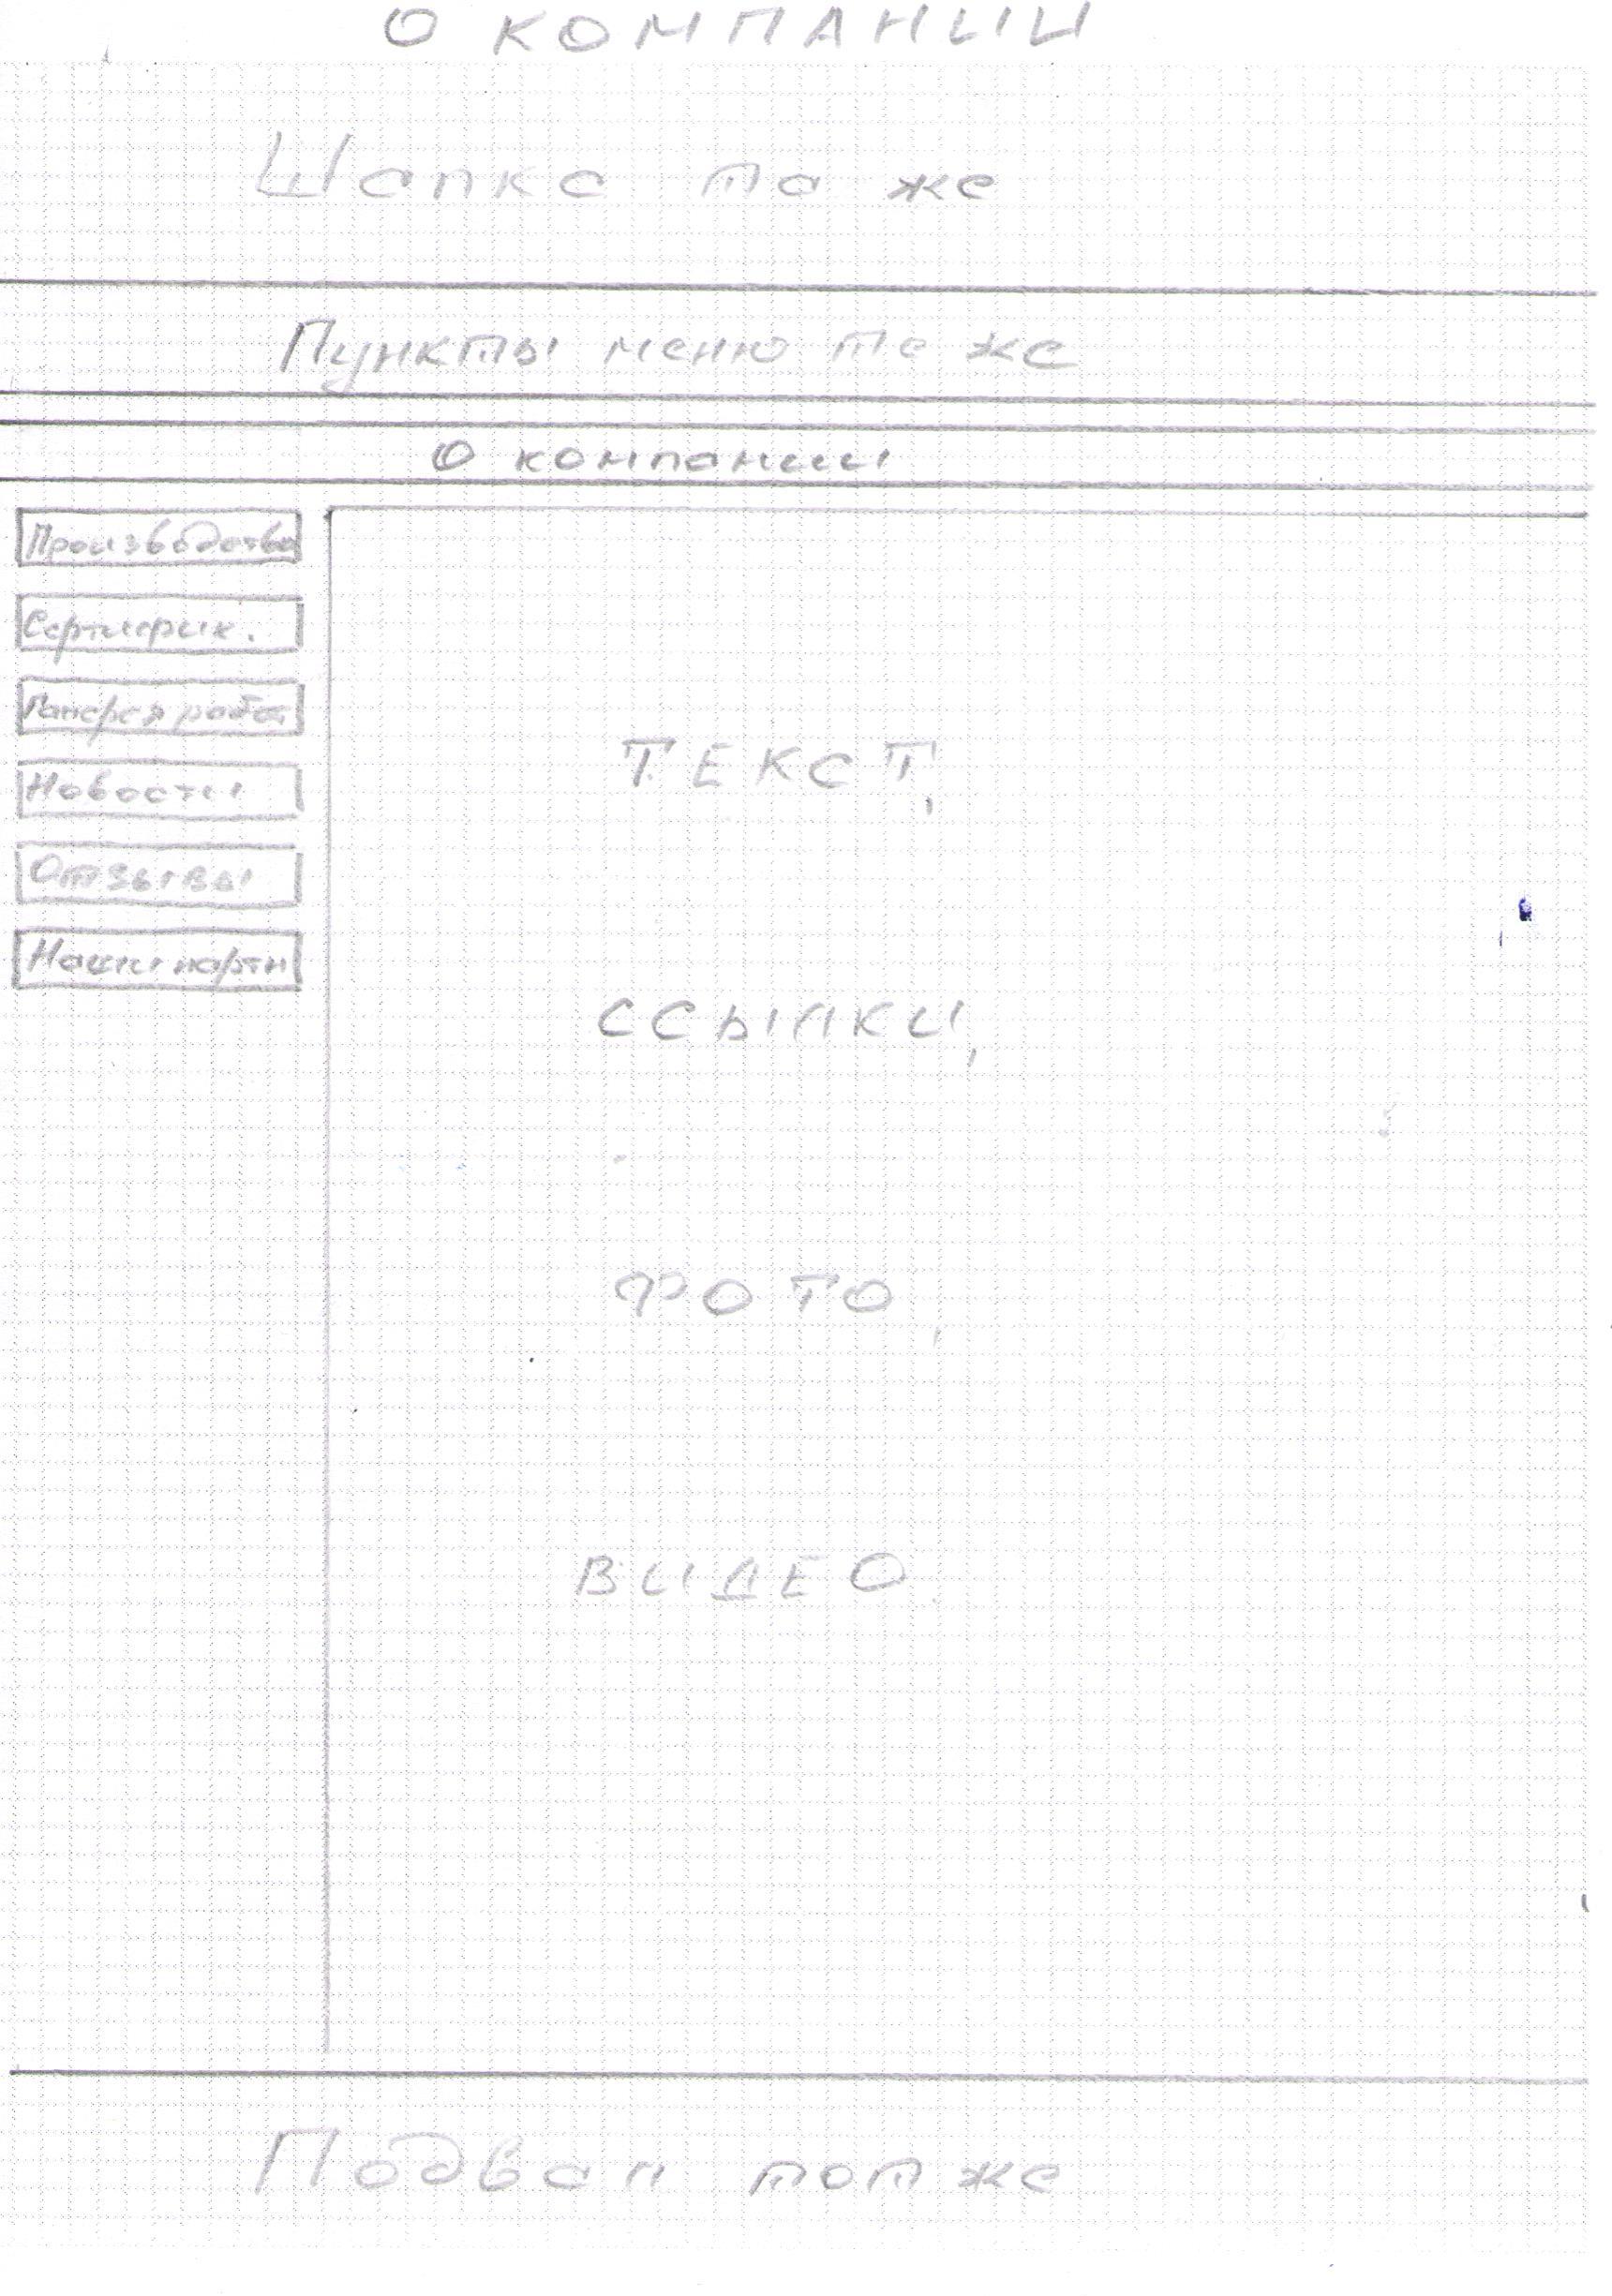 О КОМПАНИИ
Шапка та же
Пункты меню те же
О компании
Производство
Сертифик.
Галерея работ
Новости
Отзывы
Наши партн
ТЕКСТ,
ССЫЛКИ,
ФОТО,
ВИДЕО.
Подвал тот же